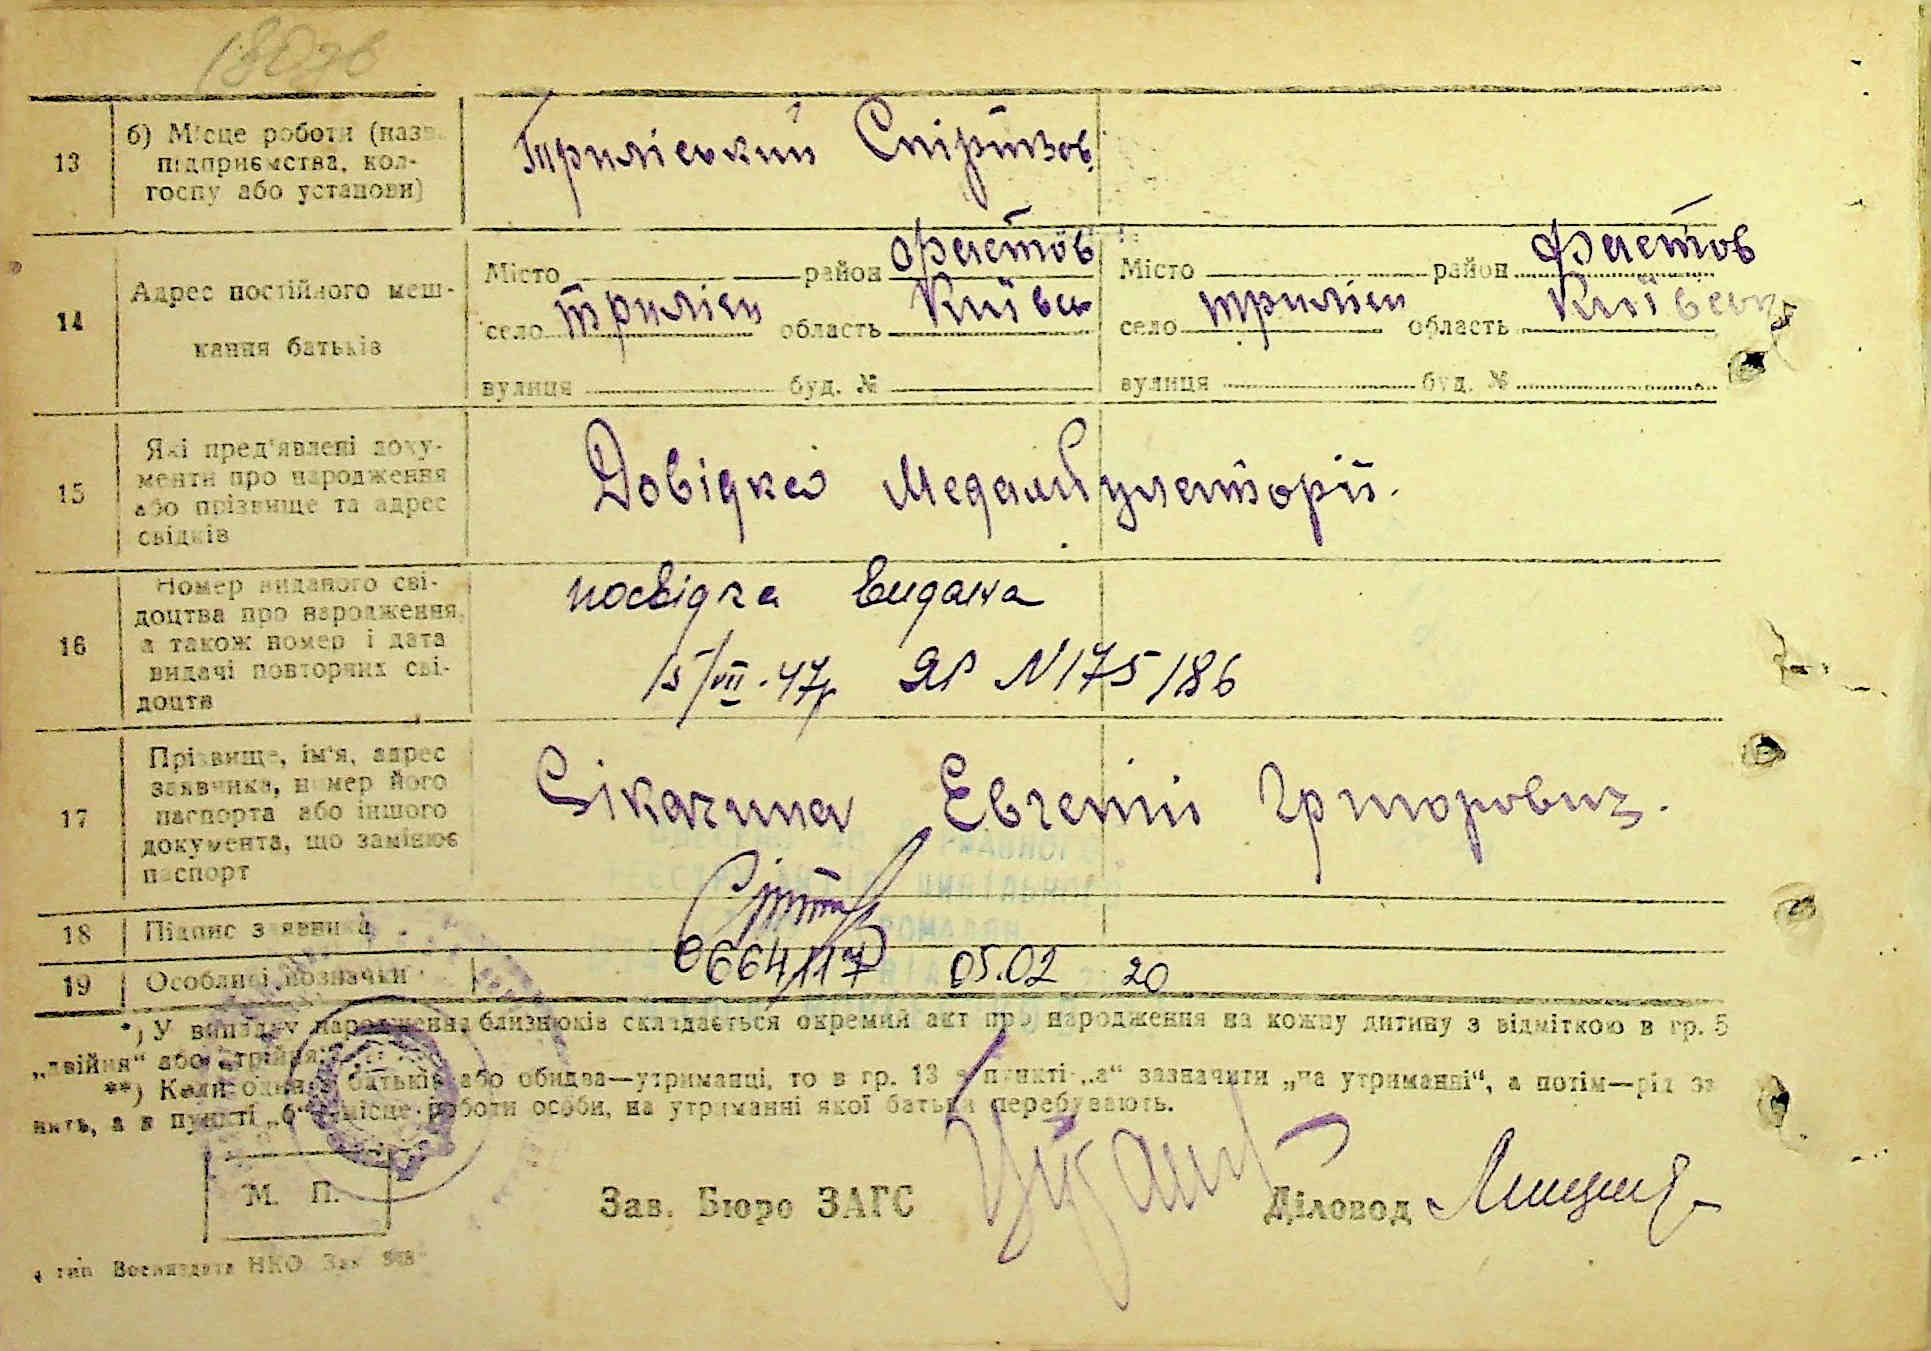 13
б) Місце роботи (назва
підприємства, кол-
госпу або установи)
Трилiський Спіртзов.
14
Адрес постійного меш-
кання батьків
Місто район Фастов
село Триліси область Київськ
вулиця буд. №
Місто район Фастов
село Триліси область Київськ
вулиця буд. №
15
Які пред'явлені доку-
менти про народження
або прізвище та адрес
свідків
Довідка Медамбулаторії.
16
Номер виданого сві-
доцтва про народження,
а також номер і дата
видачі повторних сві-
доцтв
посвідка видана
15/VII-47р ЯР N 175186
17
Прізвище, ім'я, адрес
заявника, номер його
паспорта або іншого
документа, що замінює
паспорт
Євгеній Григорович.
18
Підпис заявника
19
Особливі позначки
664117 05.02 20
*) У випадку народження близнюків складається окремий акт про народження на кожну дитину з відміткою в гр. 5
„двійня“ або „трійня“.
**) Коли один з батьків або обидва—утриманці, то в гр. 13 в пункті „а“ зазначити „на утриманні“, а потім—рід за
нять, а в пункті „б“ місце роботи особи, на утриманні якої батьки перебувають.
М. П.
Зав. Бюро ЗАГС
Діловод
тип. Воениздата НКО Зак